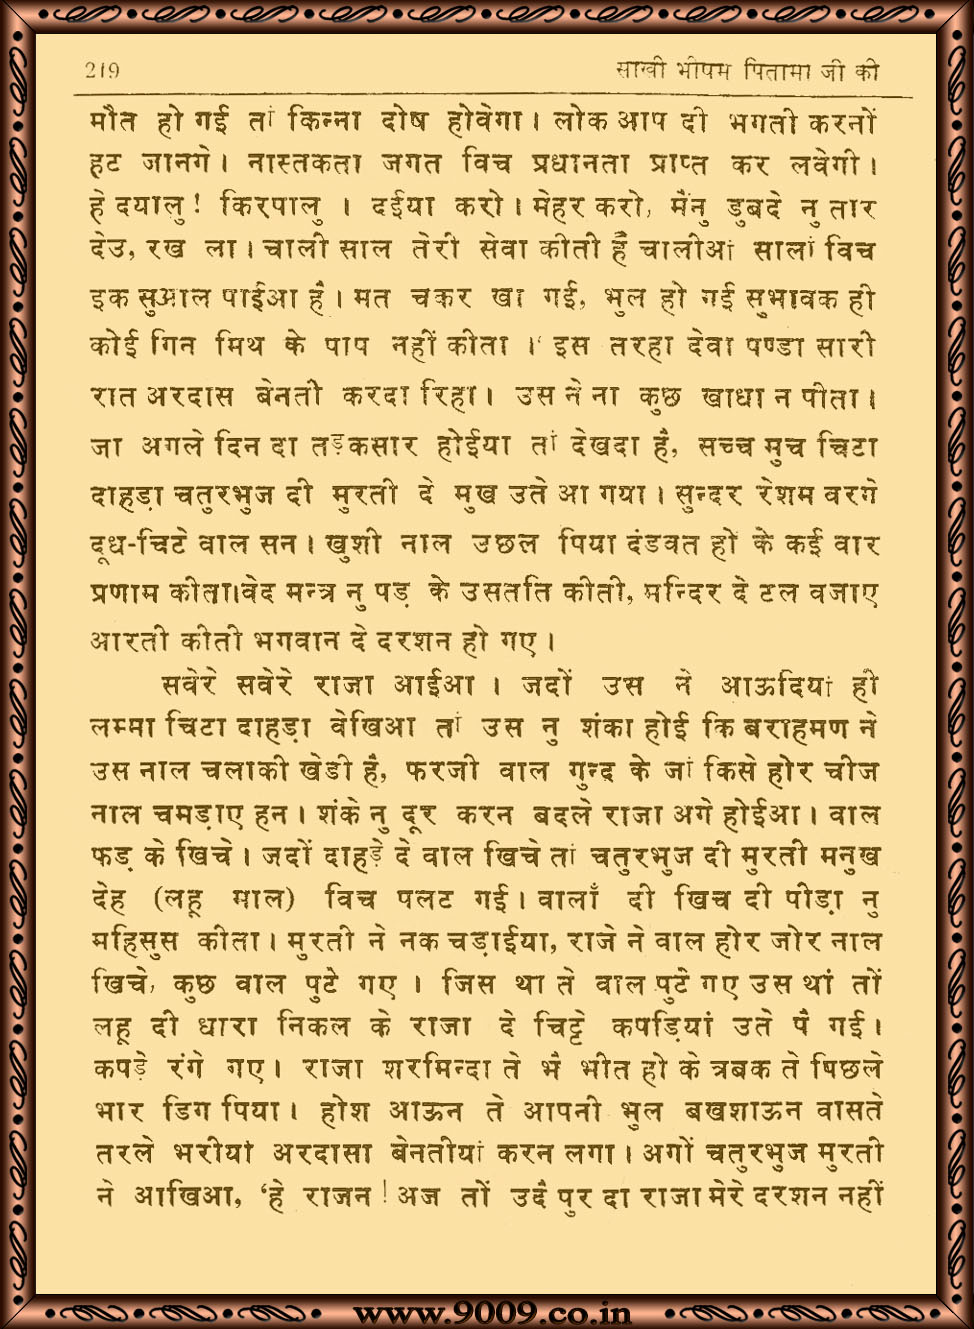 219 साखी भीषम पितामा जी की
मौत हो गई तां किन्ना दोष होवेगा। लोक आप दी भगती करनों
हट जानगे। नास्तकता जगत विच प्रधानता प्राप्त कर लवेगी।
हे दयालु! किरपालु । दईया करो। मेहर करो, मैंनु डुबदे नु तार
देउ, रख ला। चाली साल तेरी सेवा कीती है चालीआं सालां विच
इक सुआल पाईआ है। मत चकर खा गई, भुल हो गई सुभावक ही
कोई गिन मिथ के पाप नहीं कीता । इस तरहा देवा पण्डा सारी
रात अरदास बेनती करदा रिहा। उस ने ना कुछ खाधा न पीता।
जा अगले दिन दा तड़कसार होईया तां देखदा है, सच्च मुच चिटा
दाहड़ा चतुरभुज दी मुरती दे मुख उते आ गया। सुन्दर रेशम वरगे
दूध-चिटे वाल सन। खुशी नाल उछल पिया दंडवत हो के कई वार
प्रणाम कीता।वेद मन्त्र नु पड़ के उसतति कीती, मन्दिर दे टल वजाए
आरती कीती भगवान दे दरशन हो गए।
सवेरे सवेरे राजा आईआ । जदों उस ने आऊदियां ही
लम्मा चिटा दाहड़ा वेखिआ तां उस नु शंका होई कि बराहमण ने
उस नाल चलाकी खेडी है, फरजी वाल गुन्द के जां किसे होर चीज
नाल चमड़ाए हन। शंके नु दूर करन बदले राजा अगे होईआ। वाल
फड़ के खिचे। जदों दाहड़े दे वाल खिचे तां चतुरभुज दी मुरती मनुख
देह (लहू माल) विच पलट गई। वालाँ दी खिच दी पीड़ा नु
महिसुस कीता। मुरती ने नक चड़ाईया, राजे ने वाल होर जोर नाल
खिचे, कुछ वाल पुटे गए । जिस था ते वाल पुटे गए उस थां तों
लहू दी धारा निकल के राजा दे चिट्टे कपड़ियां उते पै गई।
कपड़े रंगे गए। राजा शरमिन्दा ते भै भीत हो के त्रबक ते पिछले
भार डिग पिया। होश आऊन ते आपनी भुल बखशाऊन वासते
तरले भरीयां अरदासा बेनतीयां करन लगा। अगों चतुरभुज मुरती
ने आखिआ, ‘हे राजन! अज तों उदै पुर दा राजा मेरे दरशन नहीं
www.9009.co.in